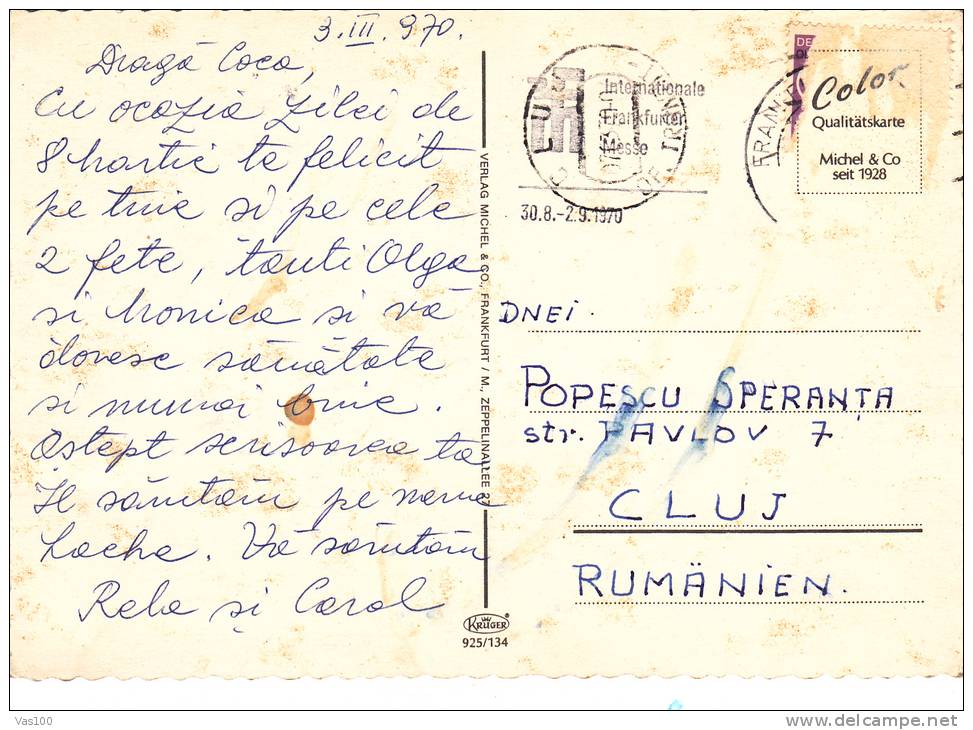 3.III.970.
Dragă Coca,
Cu ocazia zilei de
8 Martie te felicit
pe tine si pe cele
2 fete, tanti Olga
si Monica si vă
doresc sănătate
si numai bine.
Astept scrisoarea ta
Il sărutăm pe nenne
Lache. Vă sărutăm
Rela și Carol
VERLAG MICHEL & CO., FRANKFURT / M., ZEPPELINALLEE 27
KRÜGER
925/134
CLUJ
Internationale
Frankfurter
Messe
30.8.-2.9.1970
FRANK
DE
Color
Qualitätskarte
Michel & Co
seit 1928
DNEI.
POPESCU SPERANȚA
str. PAVLOV 7
CLUJ
RUMÄNIEN.
Vas100
www.delcampe.net